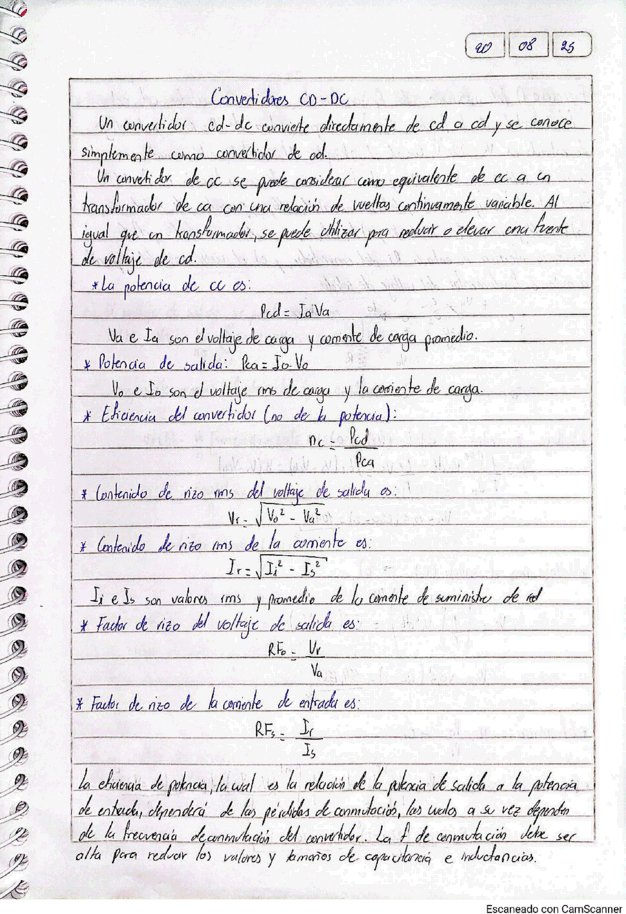 20 08 25
Convertidores CD-DC
Un convertidor cd-dc convierte directamente de cd a cd y se conoce
simplemente como convertidor de cd.
Un convertidor de cc se puede considerar como equivalente de cc a un
transformador de ca con una relación de vueltas continuamente variable. Al
igual que un transformador, se puede utilizar para reducir o elevar una fuente
de voltaje de cd.
* La potencia de cc es:
Pcd = Ia Va
Va e Ia son el voltaje de carga y corriente de carga promedio.
* Potencia de salida: Pca = Io·Vo
Vo e Io son el voltaje rms de carga y la corriente de carga.
* Eficiencia del convertidor (no de la potencia):
ηc = Pcd / Pca
* Contenido de rizo rms del voltaje de salida es:
Vr = √(Vo² - Va²)
* Contenido de rizo rms de la corriente es:
Ir = √(Ii² - Is²)
Ii e Is son valores rms y promedio de la corriente de suministro de red
* Factor de rizo del voltaje de salida es:
RFo = Vr / Va
* Factor de rizo de la corriente de entrada es:
RFs = Ir / Is
La eficiencia de potencia, la cual es la relación de la potencia de salida a la potencia
de entrada, dependerá de las pérdidas de conmutación, las cuales a su vez dependen
de la frecuencia de conmutación del convertidor. La f de conmutación debe ser
alta para reducir los valores y tamaños de capacitancia e inductancias.
Escaneado con CamScanner